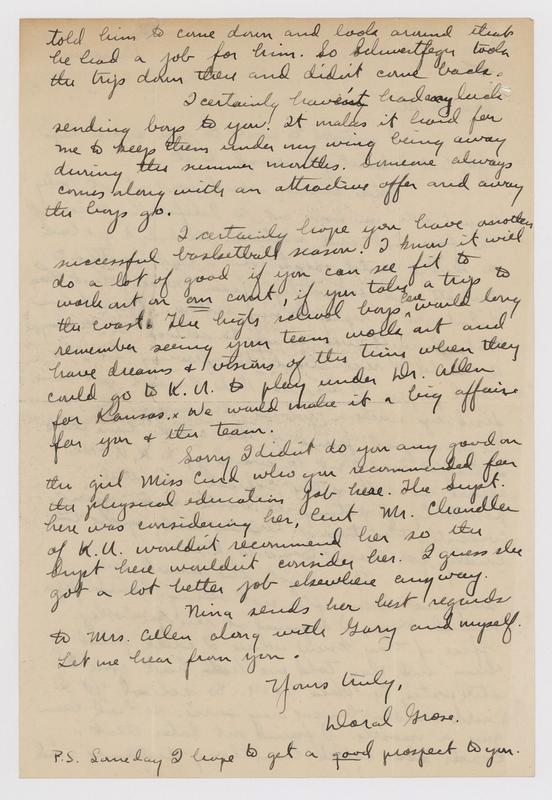 told him to come down and look around that
he had a job for him. So Schwertfeger took
the trip down there and didn't come back.
I certainly haven't had any luck
sending boys to you. It makes it hard for
me to keep them under my wing being away
during the summer months. Someone always
comes along with an attractive offer and away
the boys go.
I certainly hope you have another
successful basketball season. I know it will
do a lot of good if you can see fit to
work out on our court, if you take a trip to
the coast. The high school boys here would long
remember seeing your team work out and
have dreams & visions of the time when they
could go to K.U. to play under Dr. Allen
for Kansas. We would make it a big affair
for you & the team.
Sorry I didn't do you any good on
the girl Miss who you recommended for
the physical education job here. The Supt.
here was considering her, but Mr. Chandler
of K.U. wouldn't recommend her so the
Supt here wouldn't consider her. I guess she
got a lot better job elsewhere anyway.
Nina sends her best regards
to Mrs. Allen along with Gary and myself.
Let me hear from you.
Yours truly,
Doral Grose.
P.S. Someday I hope to get a good prospect to you.